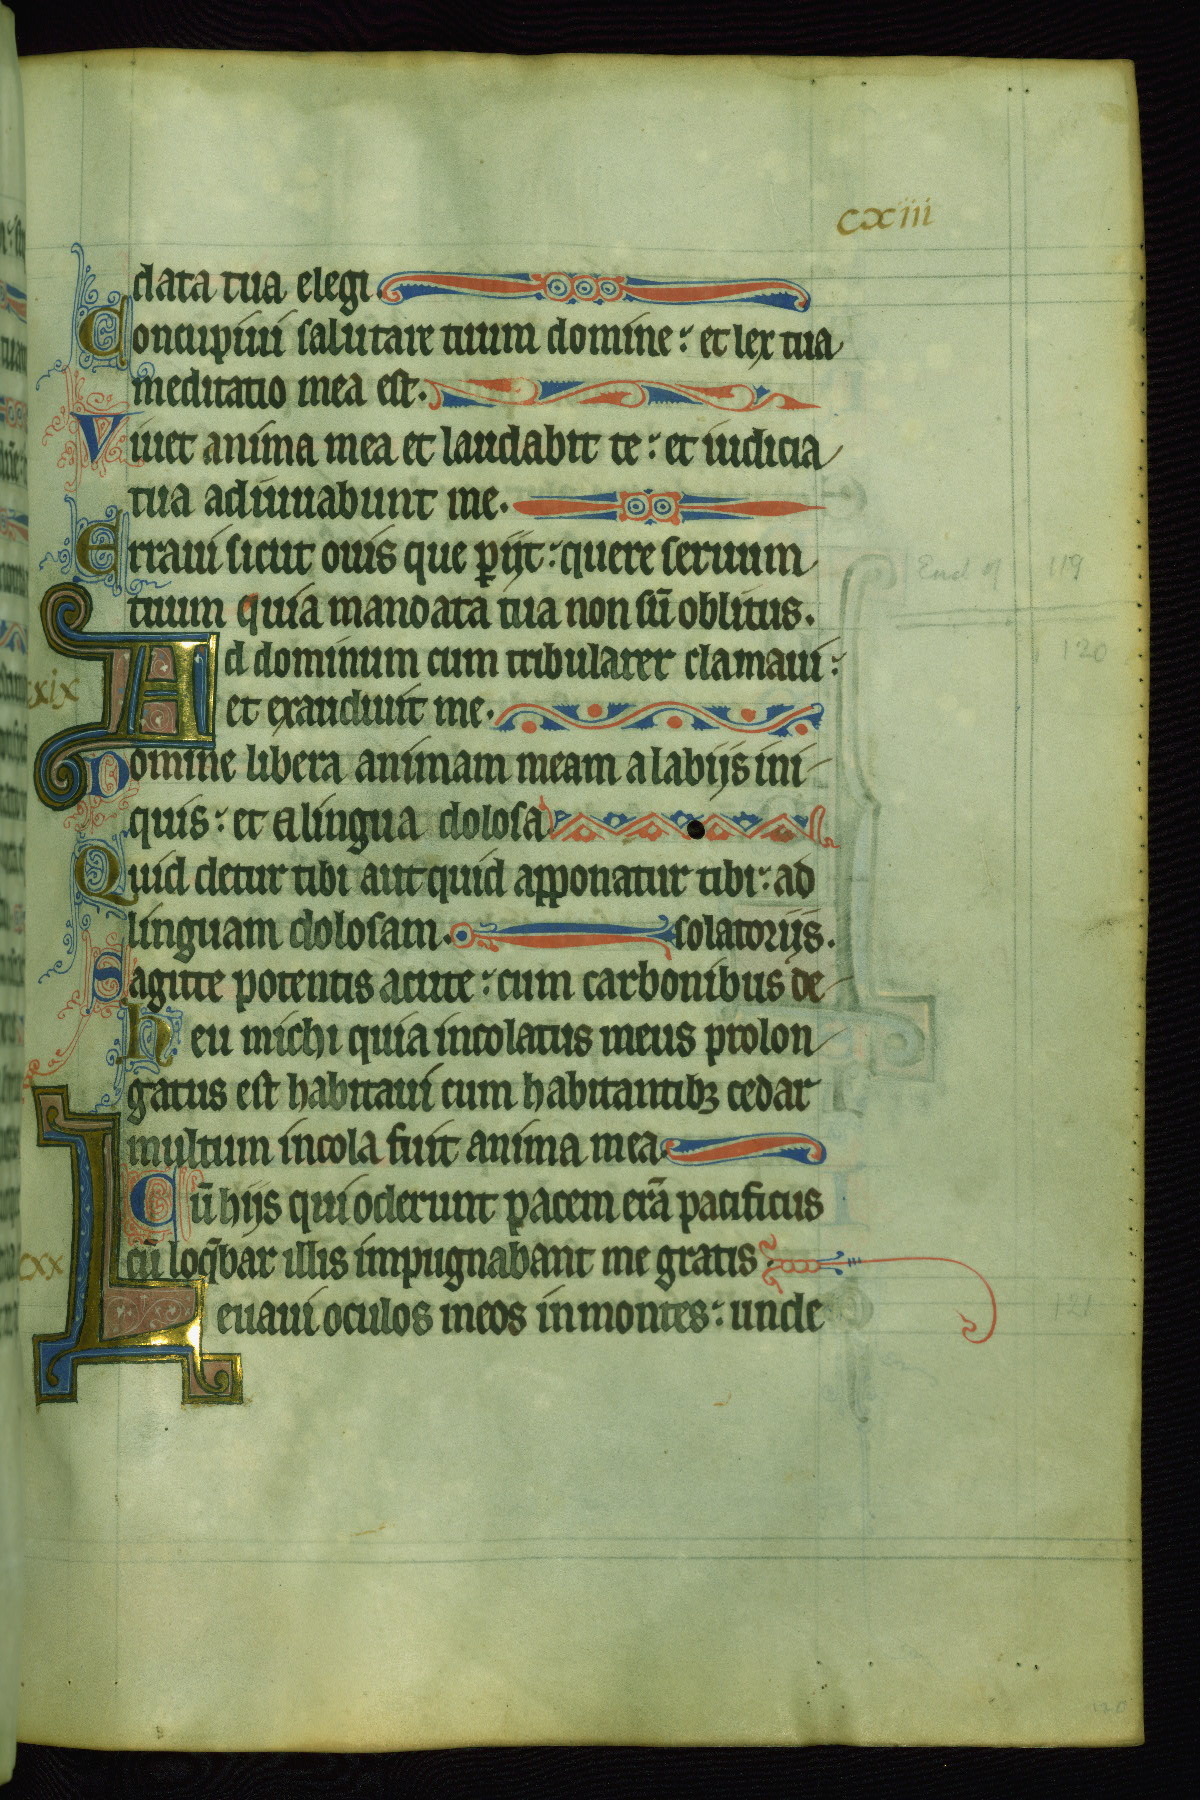 cxiii
data tua elegi.
Concupiui salutare tuum domine: et lex tua
meditatio mea est.
Viuet anima mea et laudabit te: et iudicia
tua adiuuabunt me.
Erraui sicut ouis que p̱iit: quere seruum
End of 119
tuum quia mandata tua non sū oblitus.
120
Ad dominum cum tribularer clamaui:
xix
et exaudiuit me.
Domine libera animam meam a labijs ini
quis: et a lingua dolosa
Quid detur tibi aut quid apponatur tibi: ad
linguam dolosam. solatorijs.
Sagitte potentis acute: cum carbonibus de
Heu michi quia incolatus meus prolon
gatus est habitaui cum habitantibꝫ cedar
multum incola fuit anima mea
Cū hijs qui oderunt pacem erā pacificus
cxx
cū loq̄bar illis impugnabant me gratis
Leuaui oculos meos in montes: unde
121